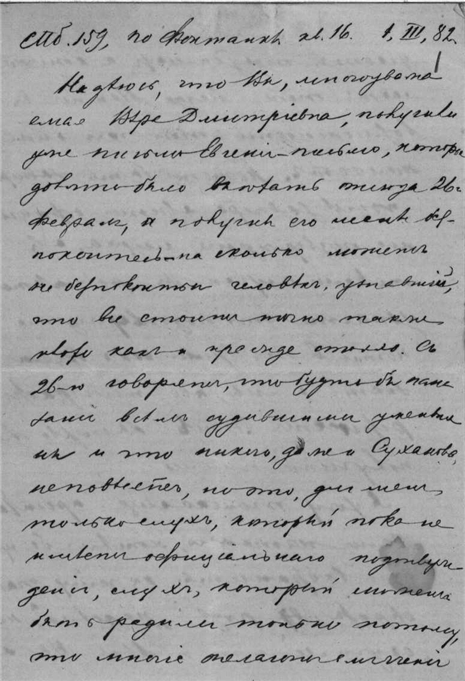 СПб. 159, по Фонтанке кв. 16. 1, III, 82.
Надеюсь, что Вы, многоуважа
емая Вера Дмитріевна, получили
уже письмо Евгенія – письмо, которое
должно было отсюда 26го
Февраля, и получив его
на сколько можетъ
не безпокоиться человѣкъ, узнавшій,
что все стоитъ точно также
как и прежде стояло. Съ
26-го говорятъ, что будто бы нака
заніе всѣмъ судившимся уменьше
но и что никого, даже и Суханова,
не повѣсятъ, но это, для меня,
только слухъ, который пока не
имѣетъ офиціальнаго подтверж
денія, слухъ, который можетъ
быть родился только потому,
что многіе желаютъ смягченія